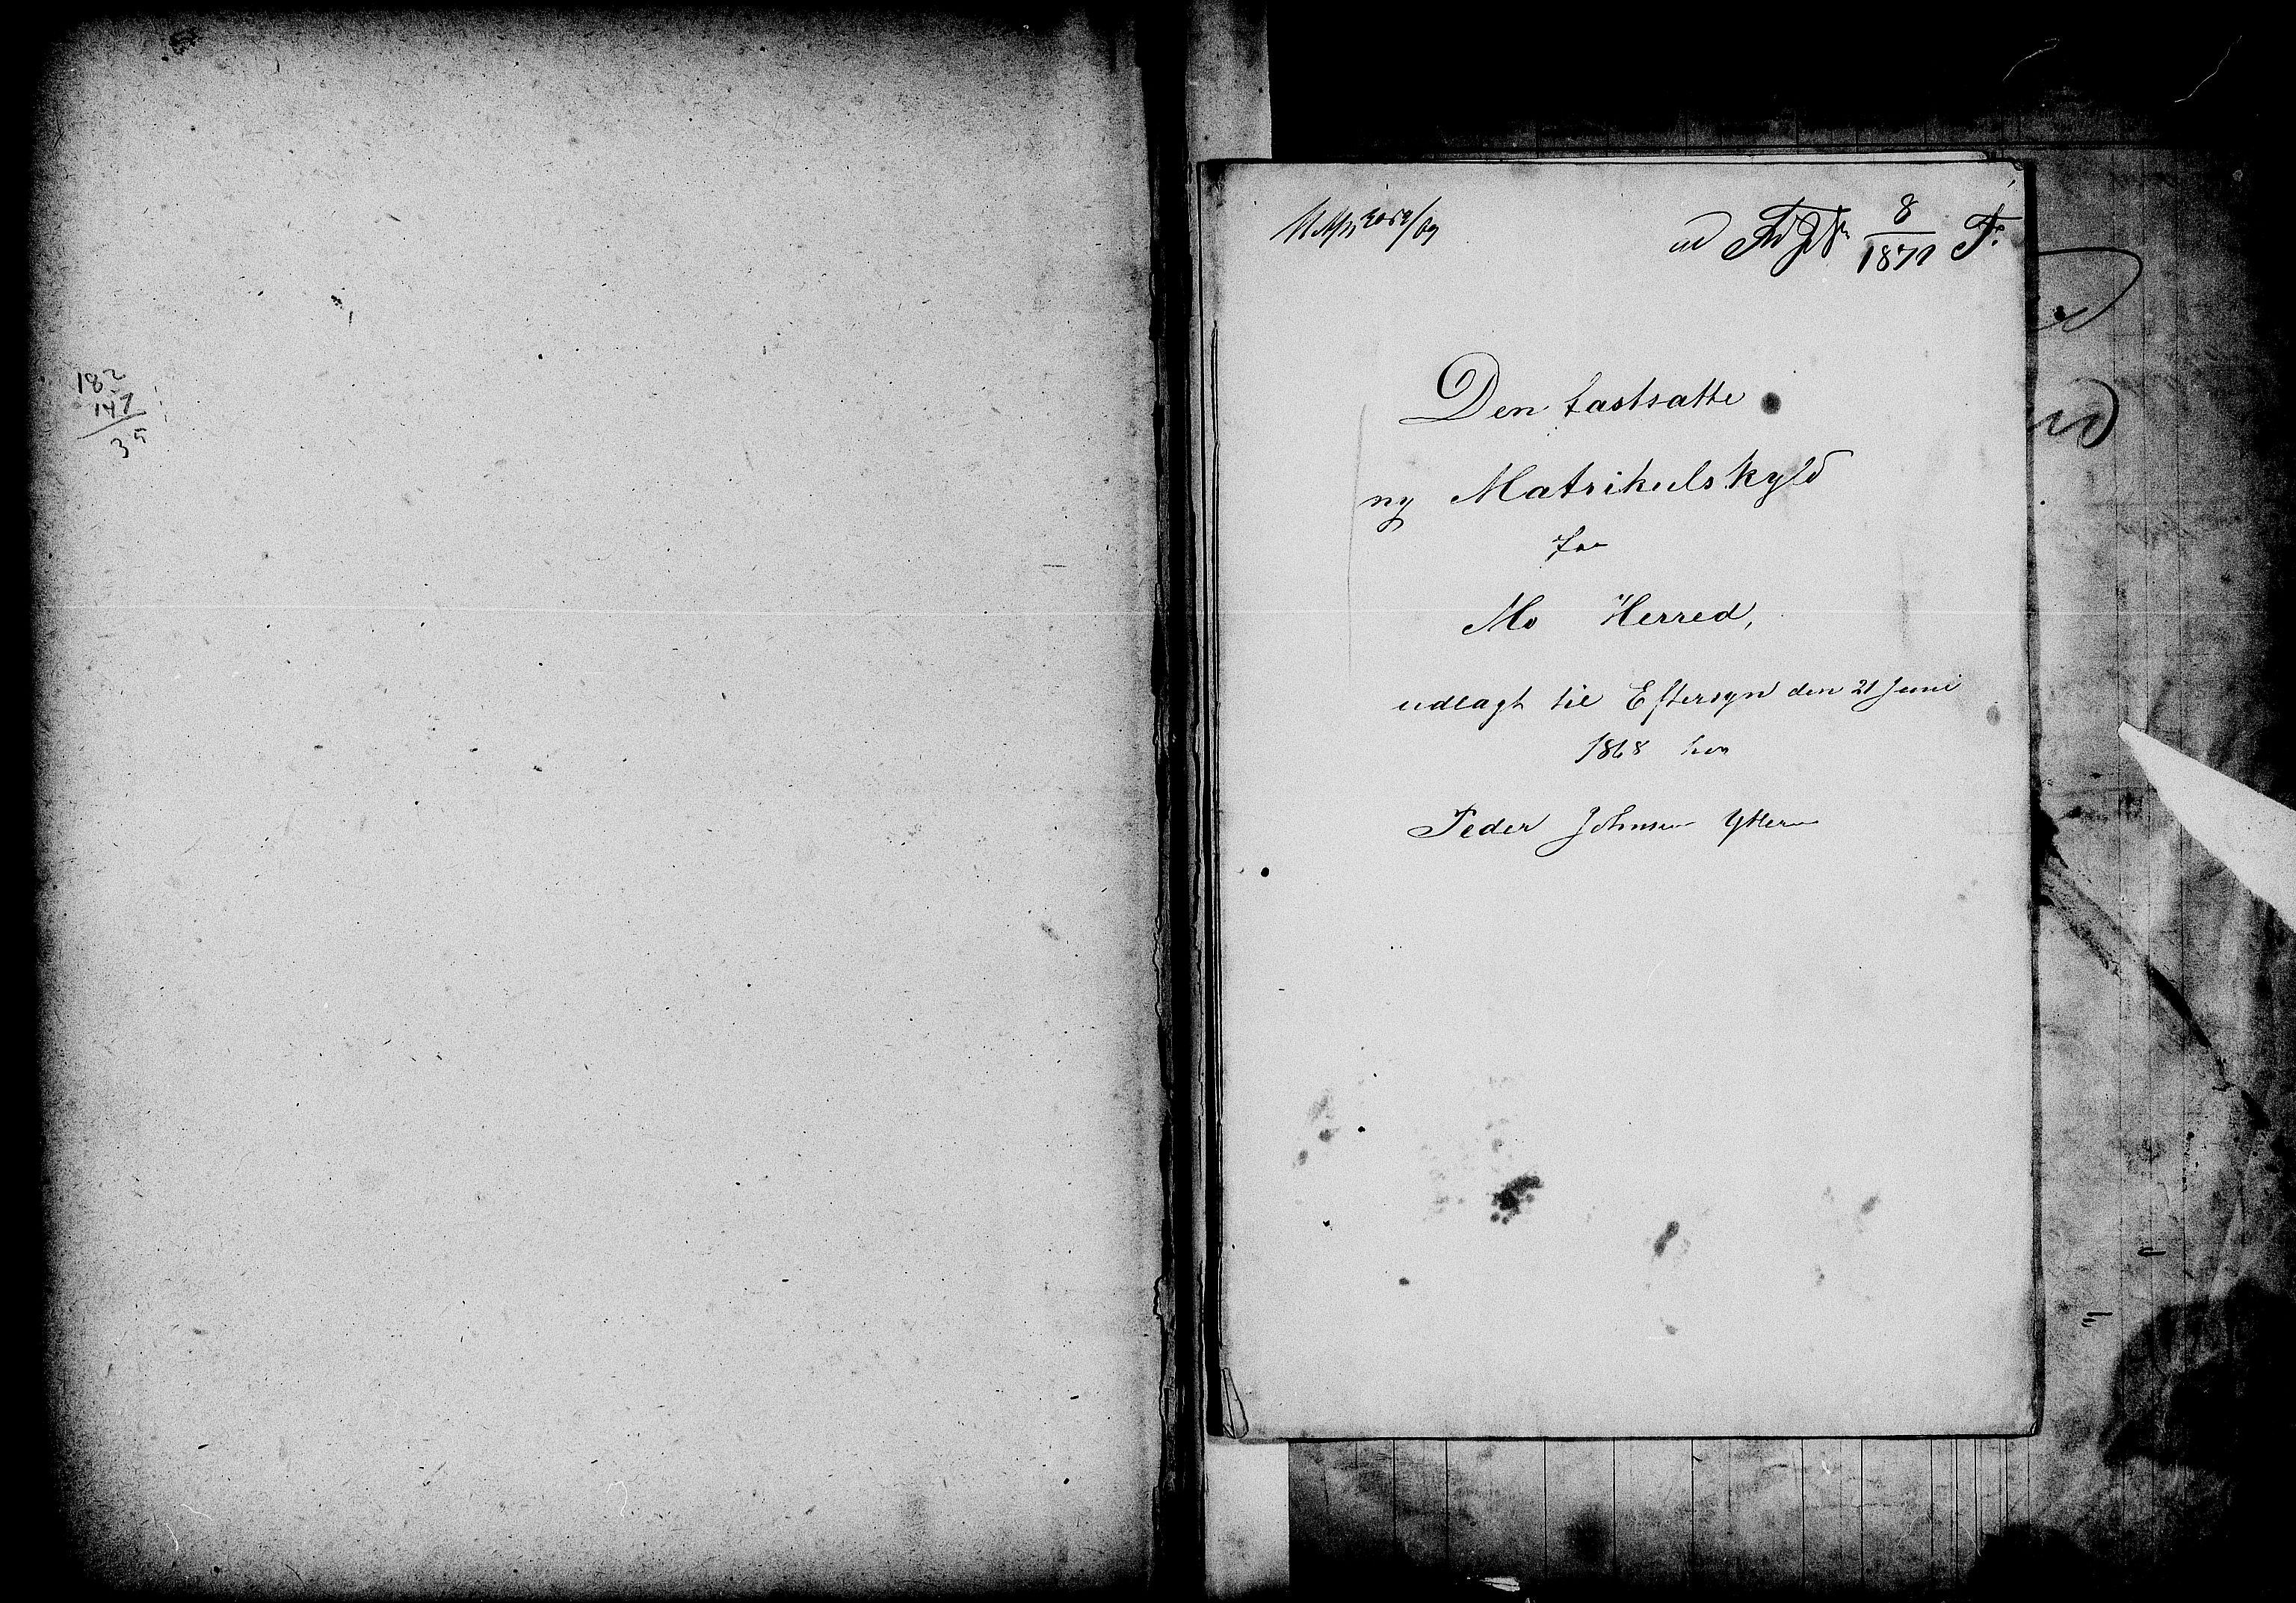 182
147
35
8
1871 F.
Den fastsatte
ny Matrikulskyld
for
Mo Herred,
udlagt til Eftersyn den 21 Juni
1868 hos
Peder Johnsen Ytteren